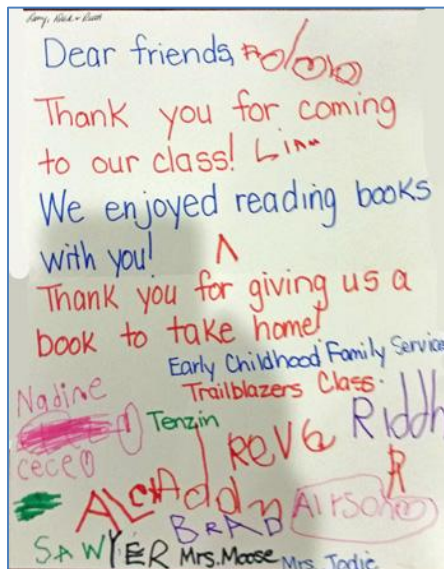 Dear friends,
Thank you for coming
to our class!
We enjoyed reading books
with you!
Thank you for giving us a
book to take home!
Early Childhood Family Service
Trailblazers Class.
Nadine
Tenzin
Reva
Riddh
cece
Addn
SAWYER
BRAD
Mrs. Moose
Mrs. Jodie